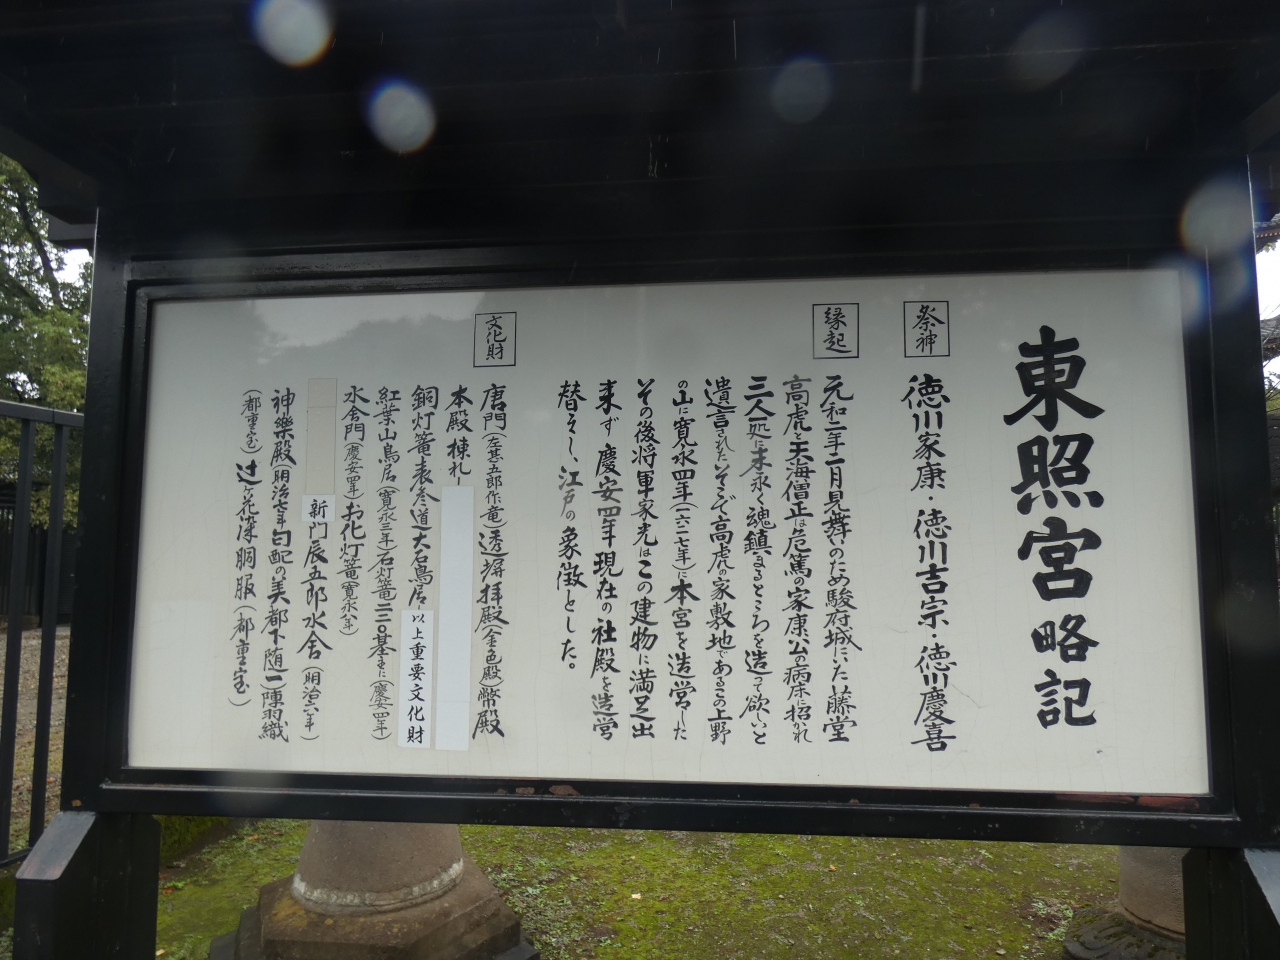 東照宮略記
祭神
徳川家康・徳川吉宗・徳川慶喜
縁起
元和二年二月見舞いのため駿府城にいた藤堂
高虎と天海僧正は危篤の家康公の病床に招かれ
三人処に末永く魂鎮まるところを造って欲しいと
遺言されたそこで高虎の家敷地であるこの上野
の山に寛永四年(一六二七年)に本宮を造営した
その後将軍家光はこの建物に満足出
来ず慶安四年現在の社殿を造営
替えし、江戸の象徴とした。
文化財
唐門(左甚五郎作竜)透塀拝殿(金色殿)幣殿
本殿棟札
銅灯篭表参道大石鳥居 以上重要文化財
紅葉山鳥居(寛永三年)石灯篭二二〇基(慶安四年)
水舎門(慶安四年)お化灯篭(寛永八年)
新門辰五郎水舎(明治六年)
神樂殿(明治七年勾配の美都下随一)陣羽織
(都重宝)辻ヶ花染胴服(都重宝)